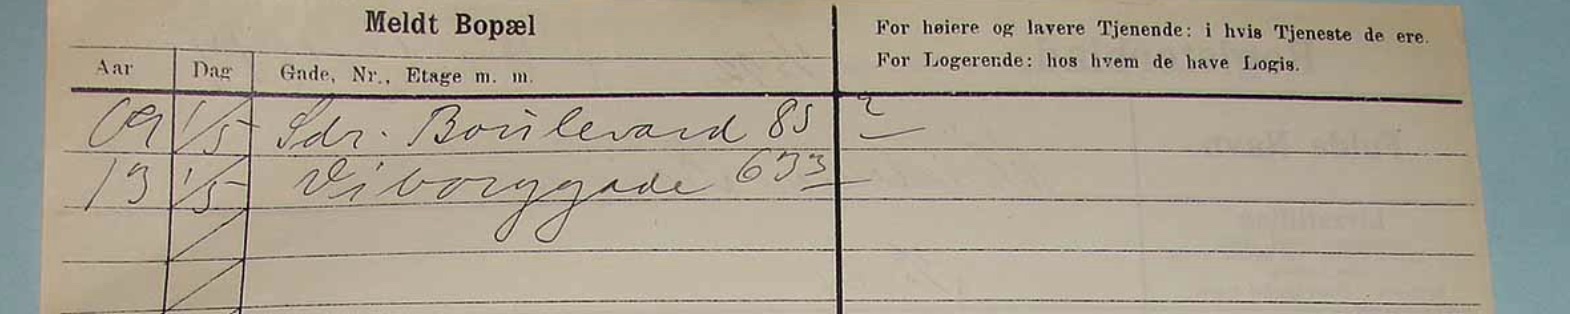 Meldt Bopæl
For høiere og lavere Tjenende: i hvis Tjeneste de ere.
For Logerende: hos hvem de have Logis.
Aar Dag Gade, Nr., Etage m. m.
09 1/5 Sdr. Boulevard 85 2
13 1/5 Viborggade 63 3